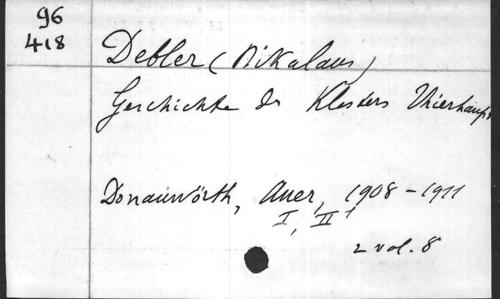 96
418
Debler (Nikalaus)
Geschichte des Klosters Thierhaupt
Donauwörth, Auer, 1908-1911
I, II
2 vol. 8